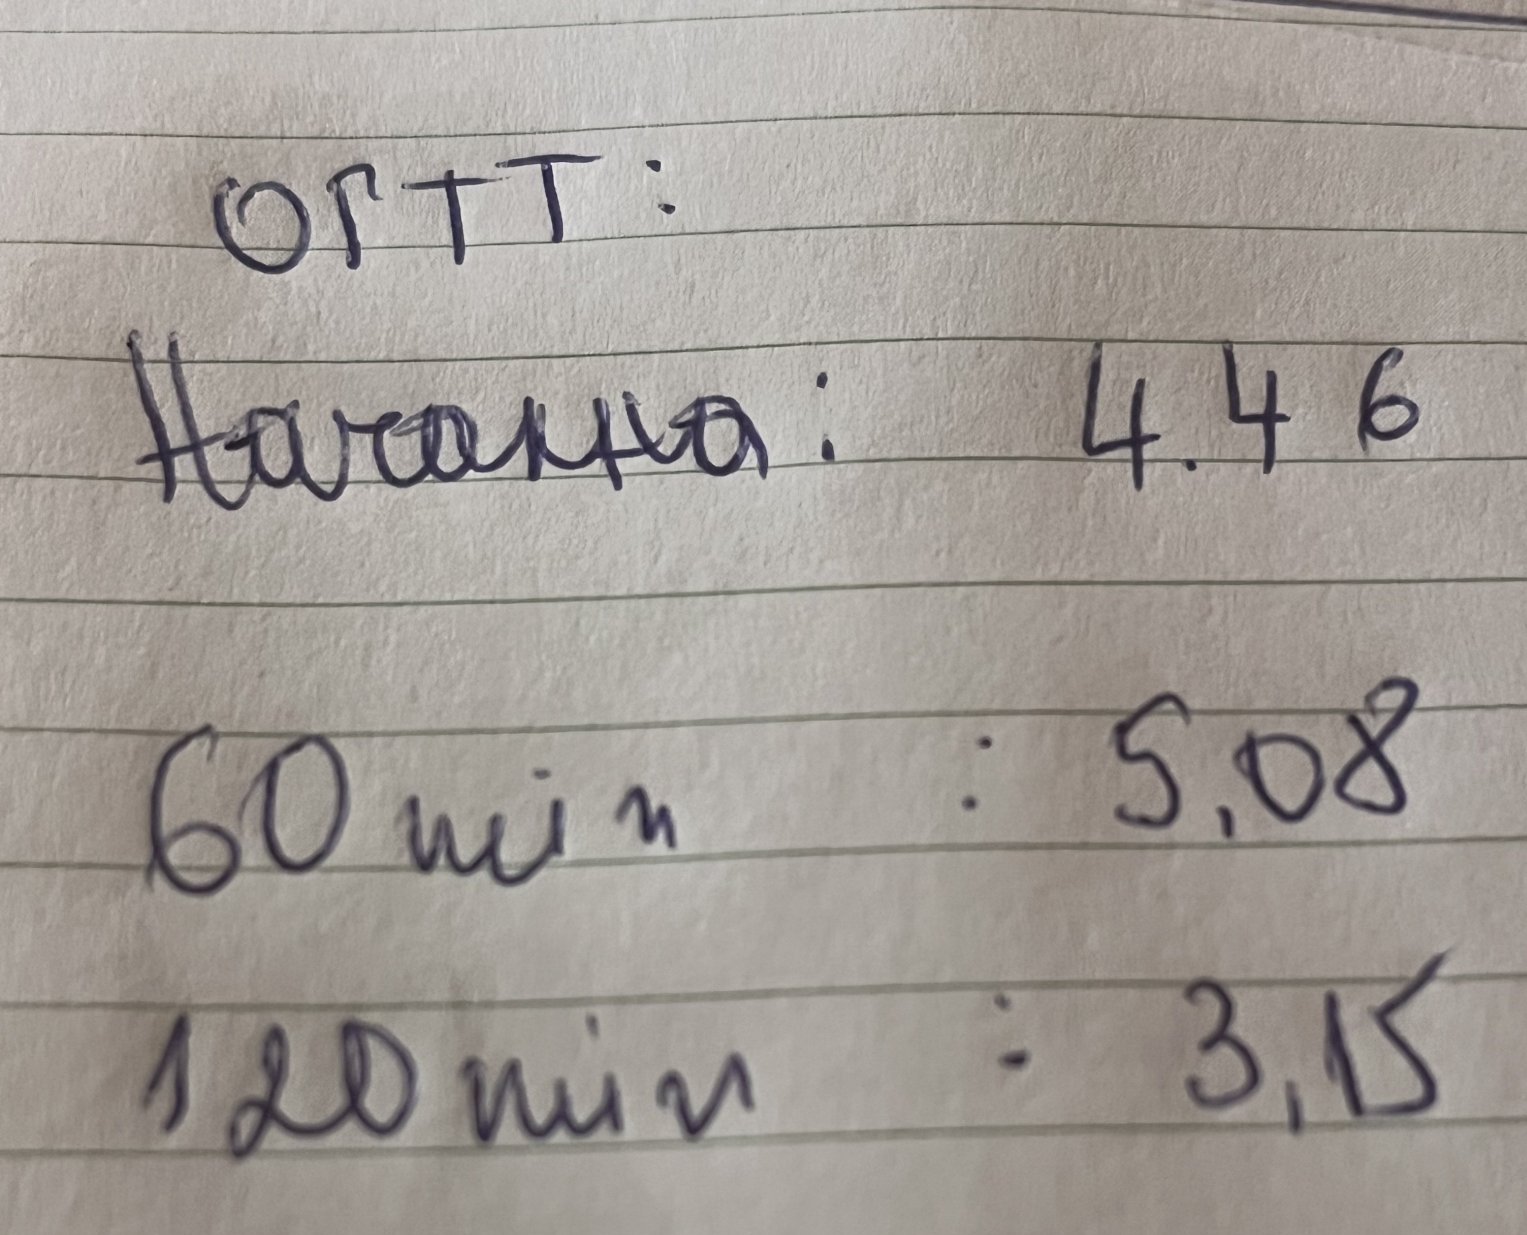 ОГТТ:
Начална: 4.46
60 min : 5,08
120 min : 3,15